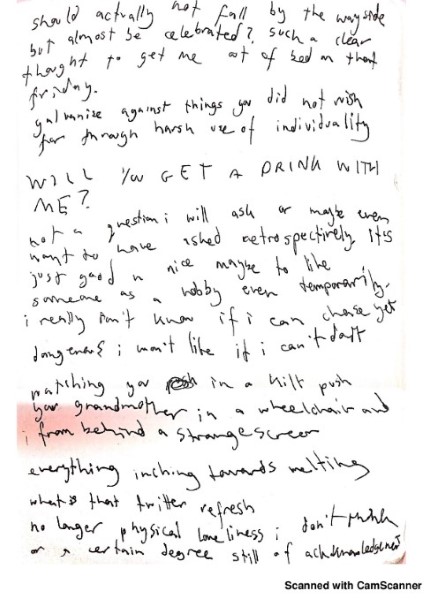 should actually not fall by the wayside
but almost be celebrated? such a clear
thought to get me out of bed on that
friday.
galvanize against things you did not wish
for through harsh use of individuality
WILL YOU GET A DRINK WITH
ME?
not a question i will ask or maybe even
want to have asked retrospectively its
just good n nice maybe to like
someone as a hobby even temporarily.
i really don't know if i can change yet
i won't like if i can't
watching you in a kilt push
your grandmother in a wheelchair and
i from behind a strange screen
everything inching towards melting
what is that twitter refresh
no longer physical loneliness i don't think
or a certain degree still of acknowledgement
Scanned with CamScanner